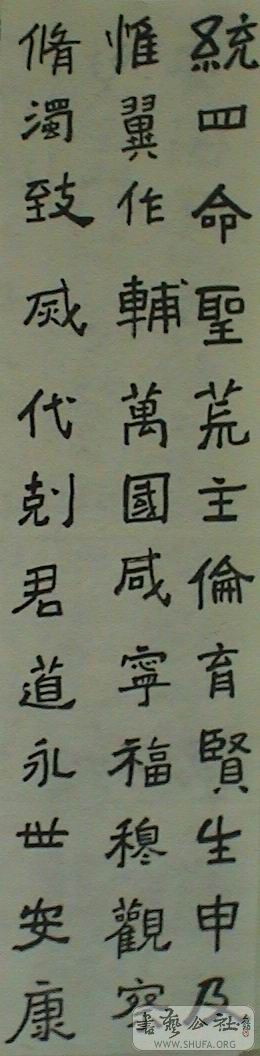 統四命聖荒主倫育賢生申及
惟翼作輔萬國咸寧福穆觀
脩濁致烕代剋君道永世安康
書藝公社
WWW.SHUFA.ORG